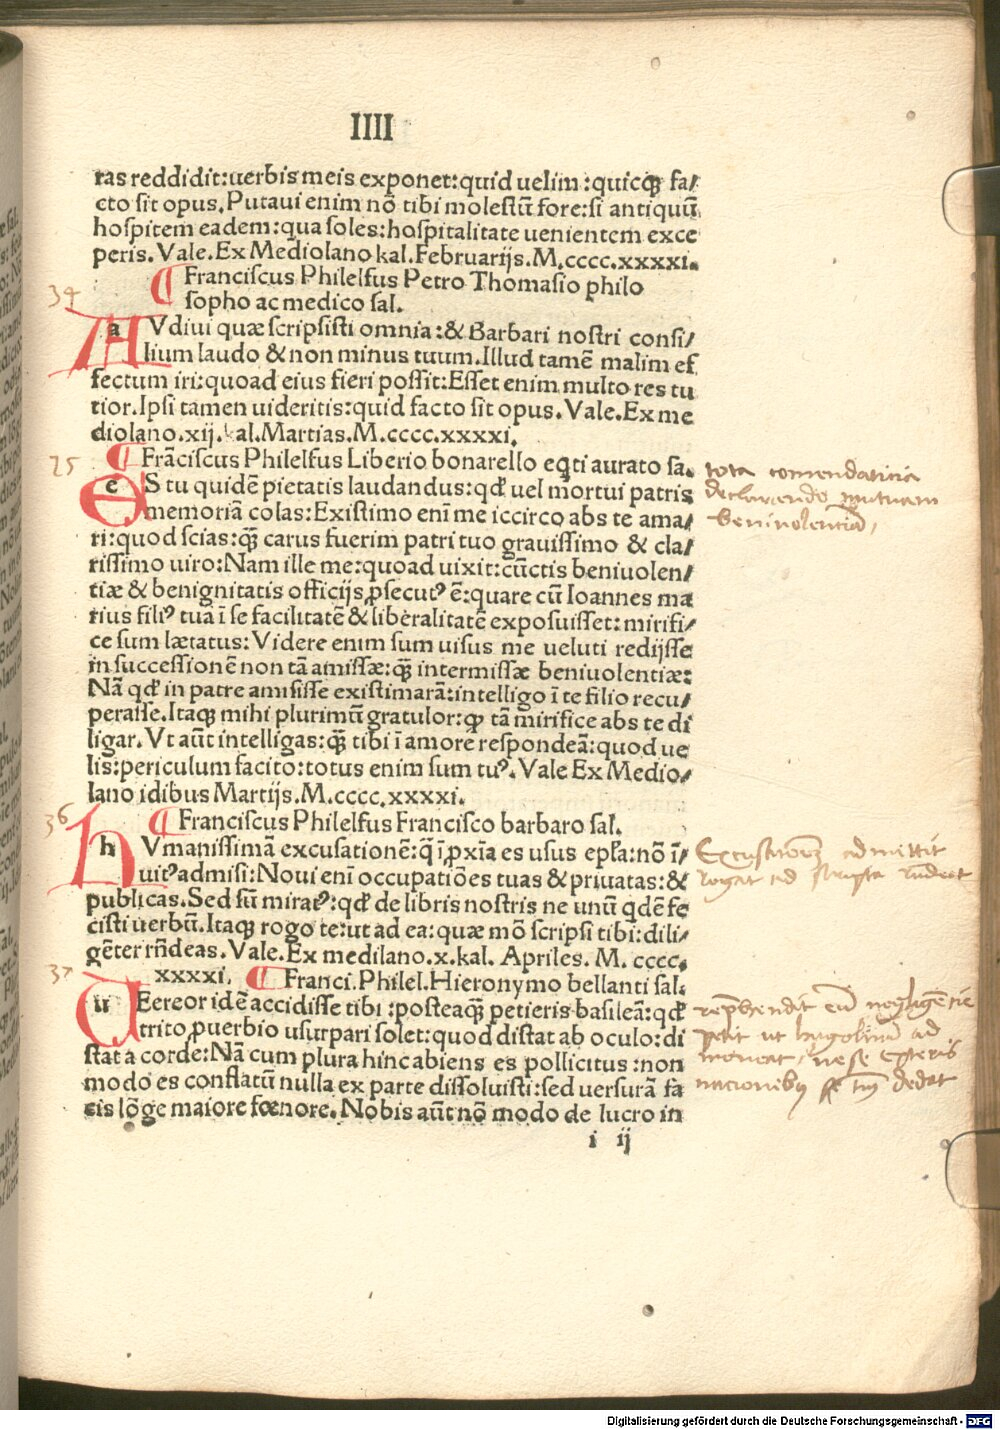 IIII
ras reddidit:uerbis meis exponet:quid uelim:quicqꝫ fa/
cto sit opus.Putaui enim nō tibi molestū fore:si antiquū
hospitem eadem:qua soles:hospitalitate uenientem exce
peris.Vale.Ex Mediolano kal.Februarijs.M.cccc.xxxxi.
¶ Franciscus Philelfus Petro Thomasio philo
34
sopho ac medico sal.
a Vdiui quæ scripsisti omnia:& Barbari nostri consi/
lium laudo & non minus tuum.Illud tamē malim ef
fectum iri:quoad eius fieri possit:Esset enim multo res tu
tior.Ipsi tamen uideritis:quid facto sit opus.Vale.Ex me
diolano.xij.kal.Martias.M.cccc.xxxxi.
25
¶ Frāciscus Philelfus Liberio bonarello eqti aurato sa.
e S tu quidē pietatis laudandus:qđ uel mortui patris
memoriā colas:Existimo enī me iccirco abs te ama/
ri:quod scias:qꝫ̄ carus fuerim patri tuo grauissimo & cla/
rissimo uiro:Nam ille me:quoad uixit:cūctis beniuolen/
tiæ & benignitatis officijs ꝓsecutꝰ ē:quare cū Ioannes ma
rius filiꝰ tuā ī se facilitatē & liberalitatē exposuisset:mirifi/
ce sum lætatus:Videre enim sum uisus me ueluti redijsse
in successionē non tā amissæ:qꝫ̄ intermissæ beniuolentiæ:
Nā qđ in patre amisisse existimarā:intelligo ī te filio recu/
perasse.Itaqꝫ mihi plurimū gratulor:ꝙ tā mirifice abs te di
ligar.Vt aūt intelligas:qꝫ̄ tibi ī amore respondeā:quod ue
lis:periculum facito:totus enim sum tuꝰ.Vale Ex Medio/
lano idibus Martijs.M.cccc.xxxxi.
tota comendaticia
declarando mutuam
beniuolentiā,
36
¶ Franciscus Philelfus Francisco barbaro sal.
h Vmanissimā excusationē:q ī ꝓxīa es usus epła:nō ī/
uitꝰ admisi:Noui enī occupatiōes tuas & priuatas:&
publicas.Sed sū miratꝰ:qđ de libris nostris ne unū qdē fe
cisti uerbū.Itaqꝫ rogo te:ut ad ea:quæ mō scripsi tibi:dili/
gēter rñdeas.Vale.Ex medilano.x.kal. Apriles. M. cccc.
admittit
rogat ad scripta
37
xxxxi. ¶ Franci.Philel.Hieronymo bellanti sal.
u Eereor idē accidisse tibi:posteaqꝫ petieris basileā:qđ
trito ꝓuerbio usurpari solet:quod distat ab oculo:di
stat a corde:Nā cum plura hinc abiens es pollicitus:non
modo es conflatū nulla ex parte dissoluisti:sed uersurā fa
cis lōge maiore fœnore.Nobis aūt nō modo de lucro in
rep̄hendit eū negligētie
petit ut hugolinū ad
moneat, ne se
dedat
i ij
Digitalisierung gefördert durch die Deutsche Forschungsgemeinschaft - DFG